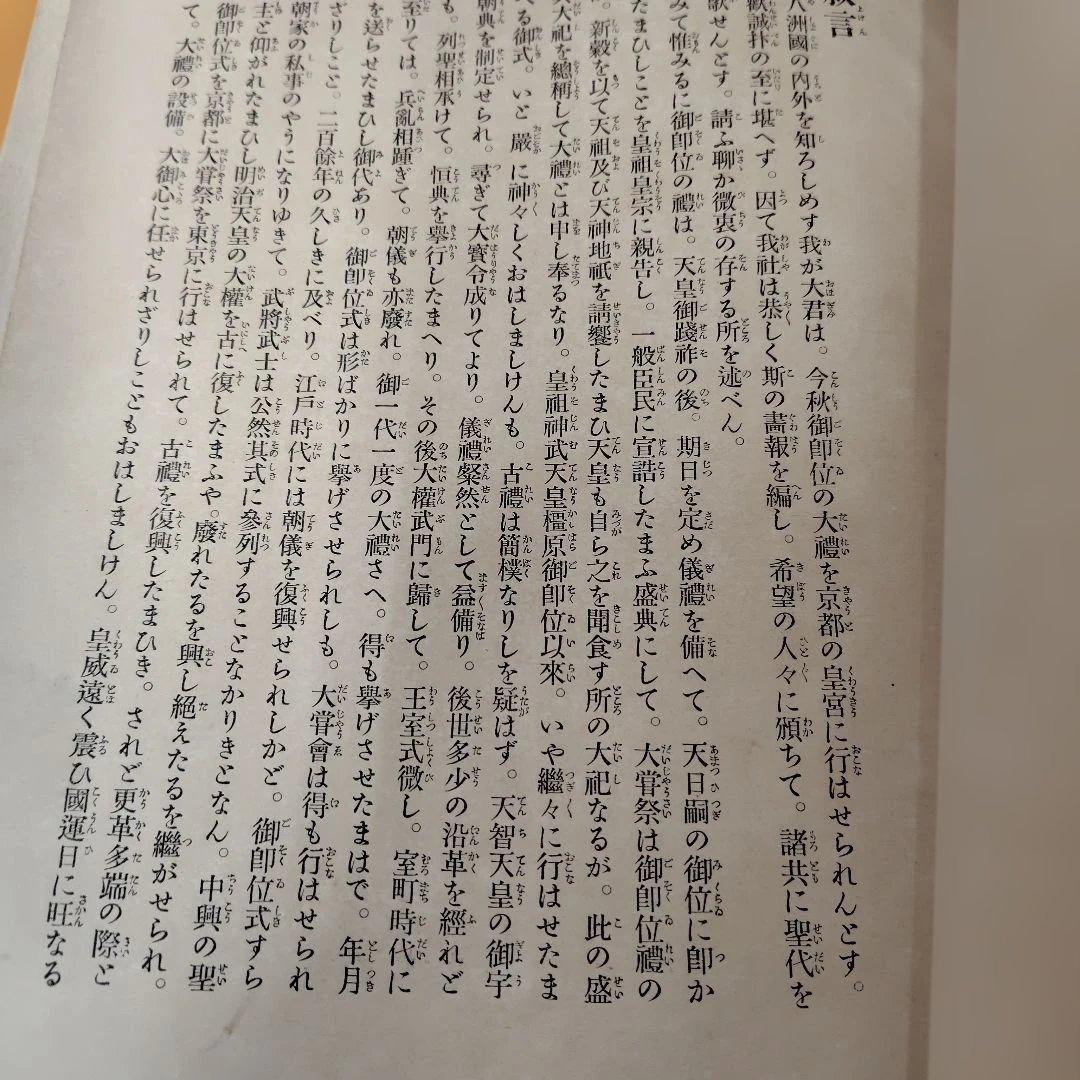 言
八洲國の内外を知ろしめす我が大君は。今秋御卽位の大禮を京都の皇宮に行はせられんとす。
歡誠抃の至に堪へず。因て我社は恭しく斯の畵報を編し。希望の人々に頒ちて。諸共に聖代を
歌せんとす。請ふ聊か微衷の存する所を述べん。
みて惟みるに御卽位の禮は。天皇御踐祚の後。期日を定め儀禮を備へて。天日嗣の御位に卽か
たまひしことを皇祖皇宗に親告し。一般臣民に宣誥したまふ盛典にして。大甞祭は御卽位禮の
。新穀を以て天祖及び天神地祇を請饗したまひ天皇も自ら之を聞食す所の大祀なるが。此の盛
大祀を總稱して大禮とは申し奉るなり。皇祖神武天皇橿原御卽位以來。いや繼々に行はせたま
へる御式。いと嚴に神々しくおはしましけんも。古禮は簡樸なりしを疑はず。天智天皇の御宇
朝典を制定せられ。尋ぎて大寳令成りてより。儀禮粲然として益備り。後世多少の沿革を經れど
も。列聖相承けて。恒典を擧行したまへり。その後大權武門に歸して。王室式微し。室町時代に
至りては。兵亂相踵ぎて。朝儀も亦廢れ。御一代一度の大禮さへ。得も擧げさせたまはで。年月
を送らせたまひし御代あり。御卽位式は形ばかりに擧げさせられしも。大甞會は得も行はせられ
ざりしこと。二百餘年の久しきに及べり。江戸時代には朝儀を復興せられしかど。御卽位式すら
朝家の私事のやうになりゆきて。武將武士は公然其式に參列することなかりきとなん。中興の聖
主と仰がれたまひし明治天皇の大權を古に復したまふや。廢れたるを興し絕えたるを繼がせられ。
御卽位式を京都に大甞祭を東京に行はせられて。古禮を復興したまひき。されど更革多端の際と
て。大禮の設備。大御心に任せられざりしこともおはしましけん。皇威遠く震ひ國運日に旺なる